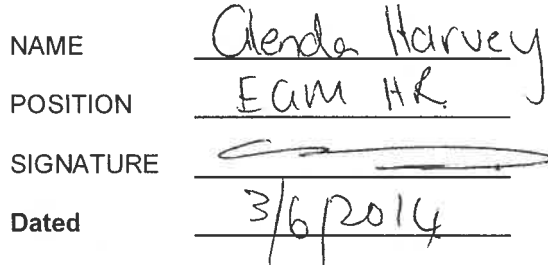 NAME Glenda Harvey
POSITION EGM HR
SIGNATURE
Dated 3/6/2014